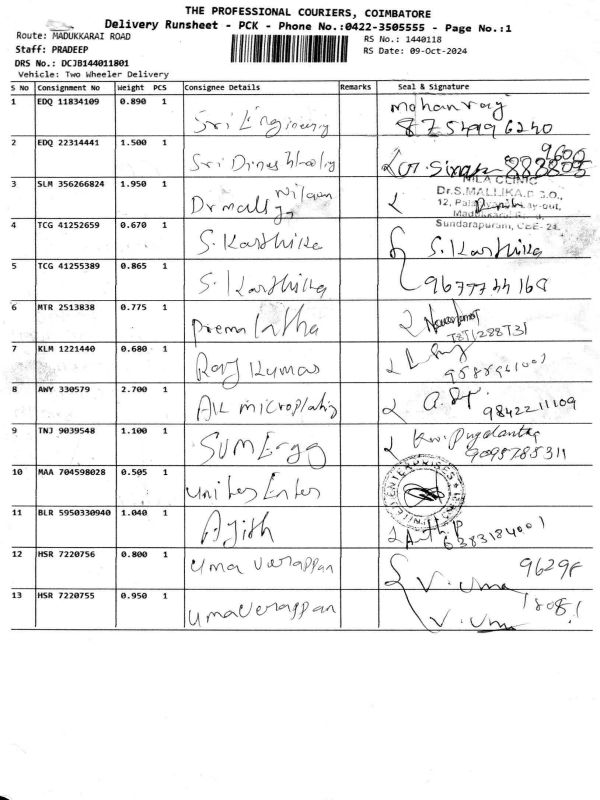 THE PROFESSIONAL COURIERS, COIMBATORE
Delivery Runsheet - PCK - Phone No.:0422-3505555 - Page No.:1
Route: MADUKKARAI ROAD
RS No.: 1440118
Staff: PRADEEP
RS Date: 09-Oct-2024
DRS No.: DCJB144011801
Vehicle: Two Wheeler Delivery
S No Consignment No Weight PCS Consignee Details Remarks Seal & Signature
1 EDQ 11834109 0.890 1 Sri Engineering Mohanraj
2 EDQ 22314441 1.500 1 Sri Dinesh
3 SLM 356266824 1.950 1 Dr mally
NILA CLINIC
Dr.S.MALLIKA
Sundarapuram, CBE- 24
4 TCG 41252659 0.670 1 S. Karthika S. Karthika
5 TCG 41255389 0.865 1 S. Karthika 9677744168
6 MTR 2513838 0.775 1 Prema latha
7 KLM 1221440 0.680 1 Raj Kumar
8 AWY 330579 2.700 1 AK microplating 9842211109
9 TNJ 9039548 1.100 1 SUM Ergg 9095785311
10 MAA 704598028 0.505 1 Unites Enter
UNITED ENTERPRISES
11 BLR 5950330940 1.040 1 Ajith 6383184001
12 HSR 7220756 0.800 1 Uma Verappan V. Uma
13 HSR 7220755 0.950 1 Uma Verappan V. Uma